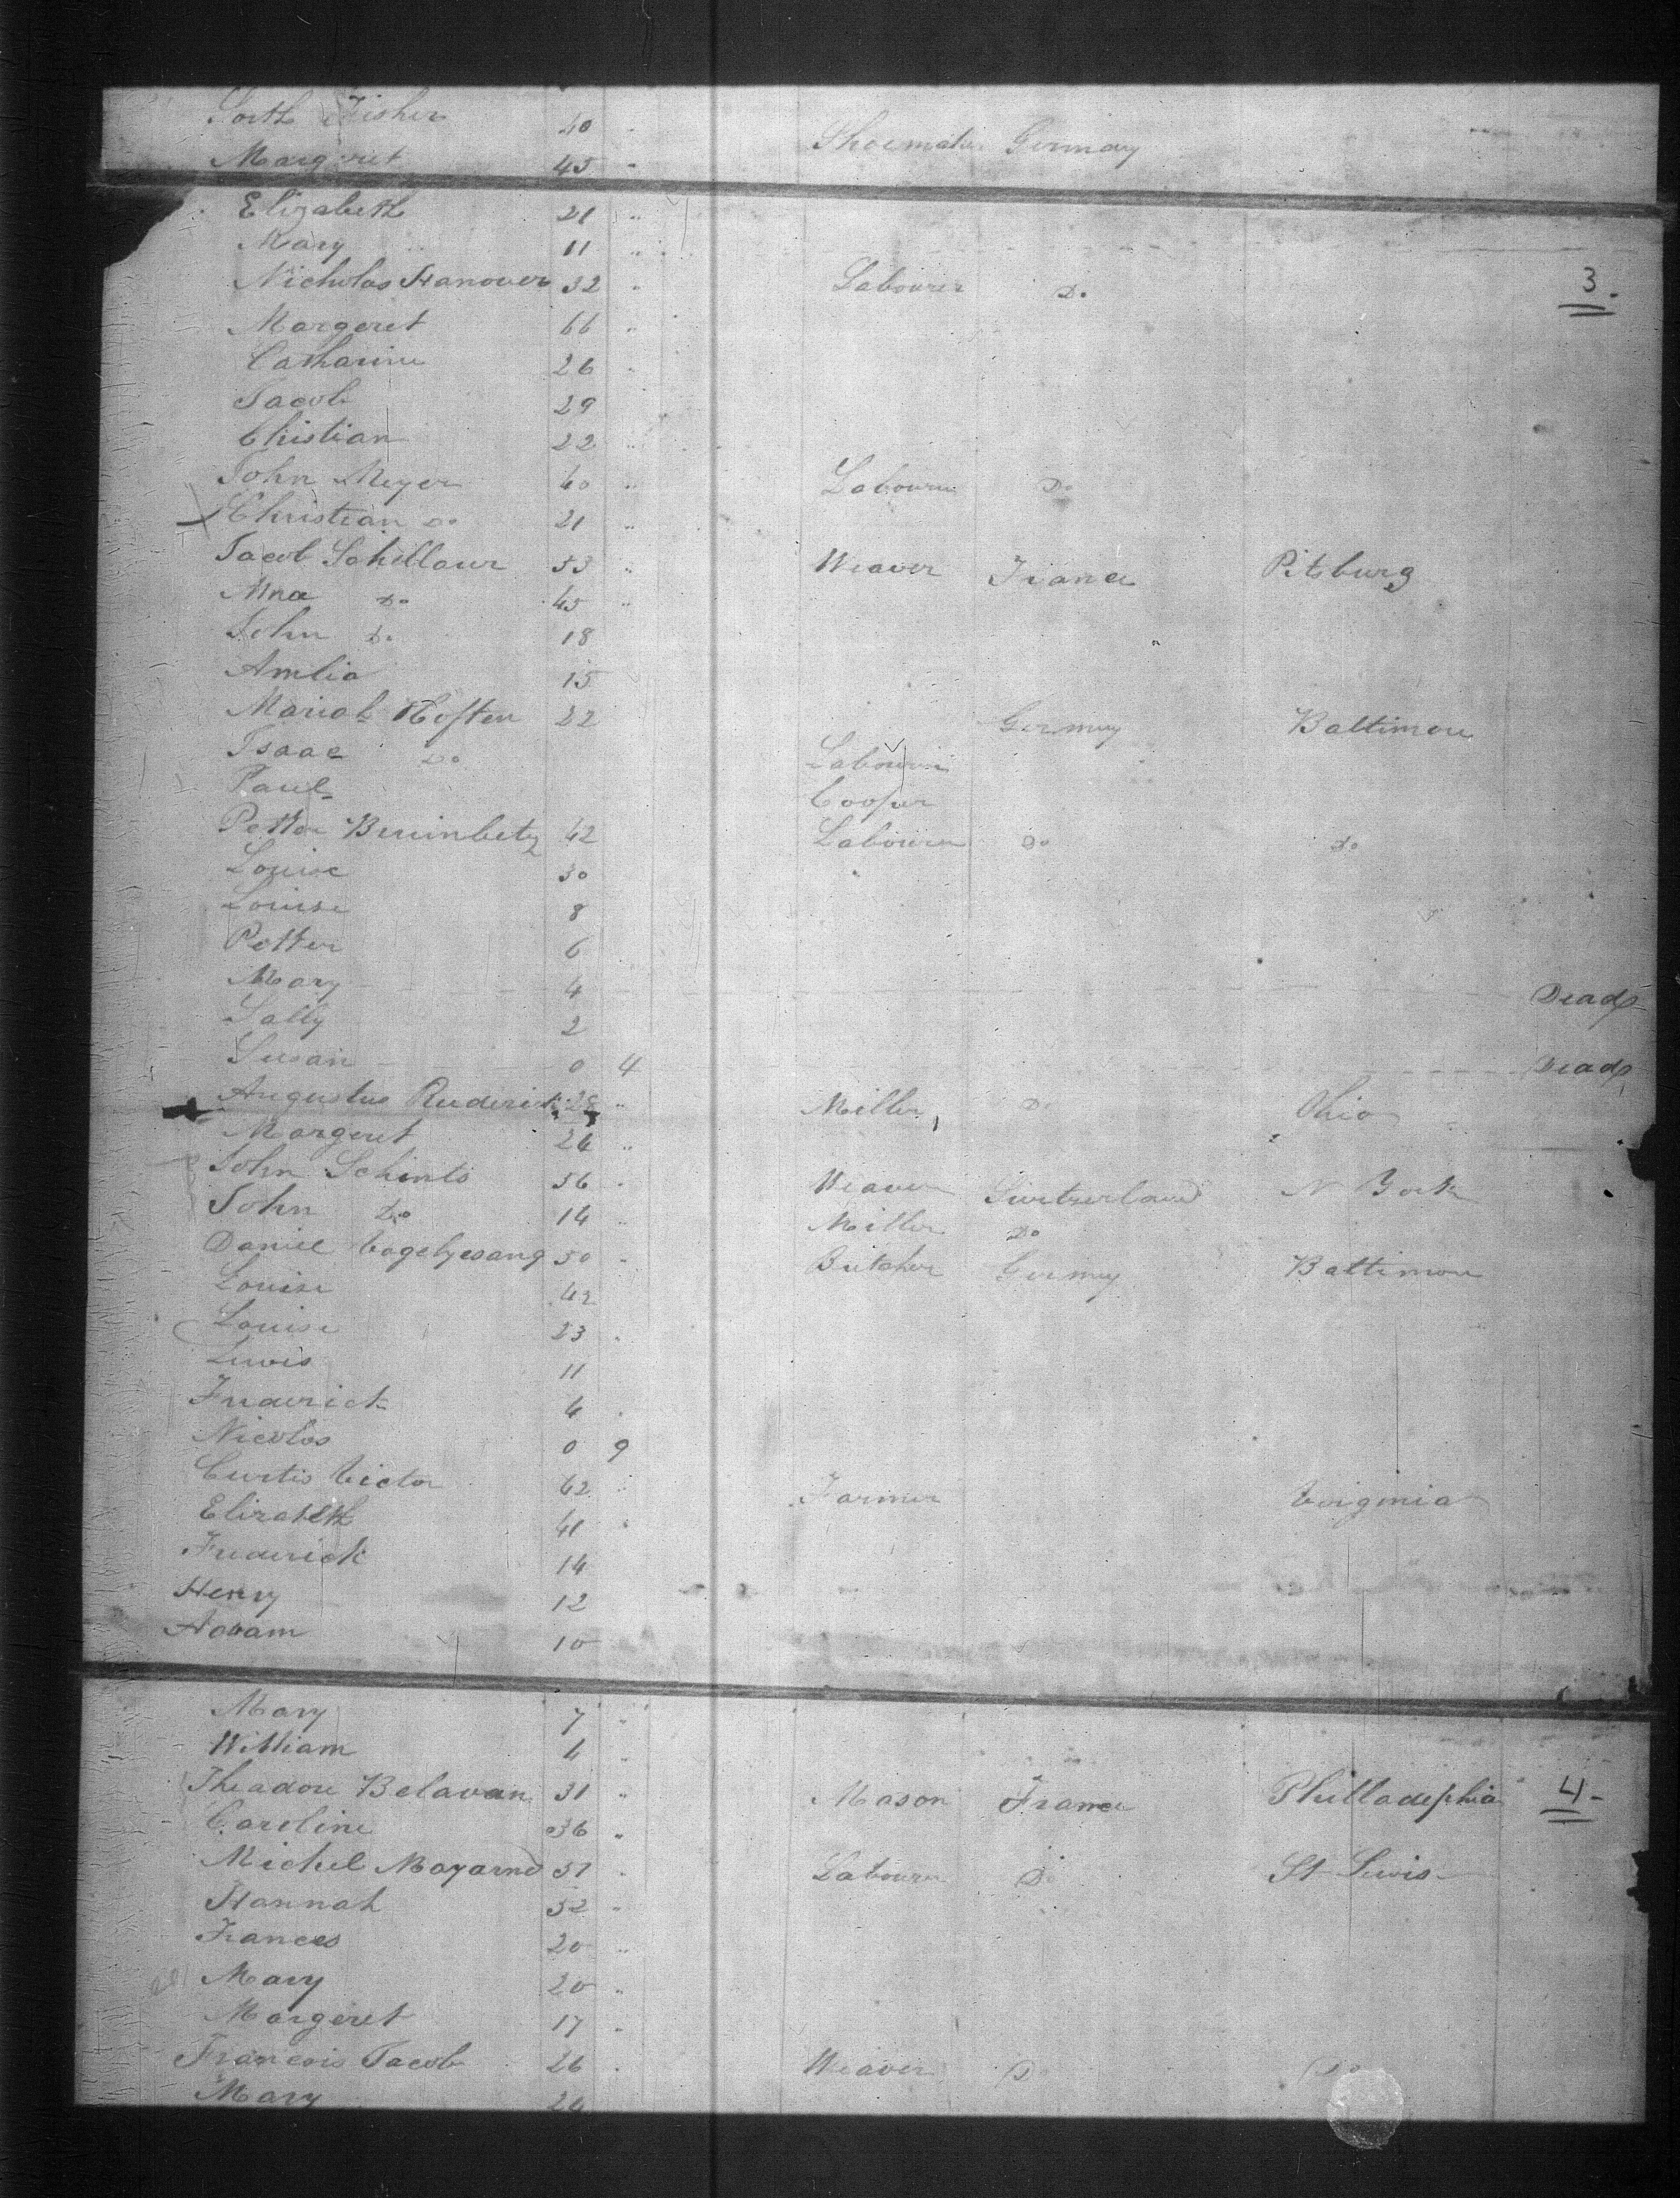 Fisher 40 "
Shoemaker Germany
Margeret 45 "
Elizabeth 21 "
Mary 11 "
Nicholas Hanover 32 " Labourer Do
3
Margeret 66 "
Catharine 26 "
Jacob 29
Chistian 22 "
John Meyer 40 " Labourer Do
Christian Do 21 "
Jacob Schillour 53 " Weaver France Pitsburg
Do 45 "
John Do 18
Amlia 15
Mariah 22 Germny Baltimore
Isaac Do Labourer
Paul Cooper
Petter 42 Labourer Do Do
Louise 30
Louise 8
Petter 6
Mary 4 Dead
Sally 2
Susan 0 4 Dead
Augustus Ruderick 28 " Miller Do Ohio
Margeret 24 "
John Schints 56 " Weaver Switzerland N York
John Do 14 " Miller Do
Daniel Vogelgesang 50 " Butcher Germny Baltimore
Louise 42
Louise 23 "
Lewis 11
Frederick 4
Nicolos 0 9
Curtis Victor 42 " Farmer Virginia
Elizabeth 41 "
Frederick 14
Henry 12
Adam 10
Mary 7 "
William 4 "
Theadore Belavan 31 " Mason France Philladephia
4
Caroline 36 "
Michel Mayarnd 51 " Labourer Do St Lewis
Hannah 52 "
Frances 20 "
Mary 20 "
Margeret 17 "
Francois Jacob 26 " Weaver Do Do
Mary